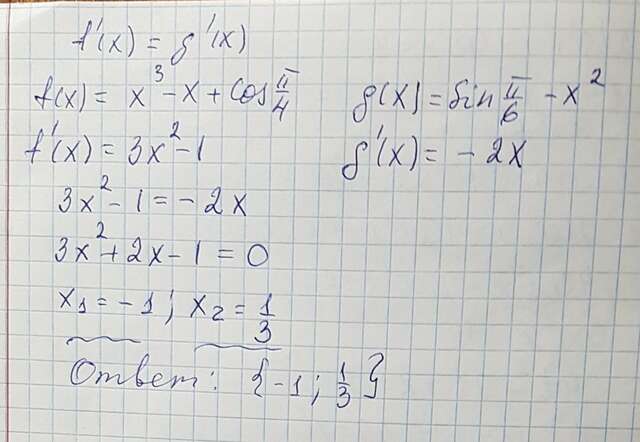 f'(x) = g'(x)
f(x) = x³ - x + cos π/4 g(x) = sin π/6 - x²
f'(x) = 3x² - 1 g'(x) = - 2x
3x² - 1 = - 2x
3x² + 2x - 1 = 0
x₁ = - 1 ; x₂ = 1/3
Ответ: {-1 ; 1/3}